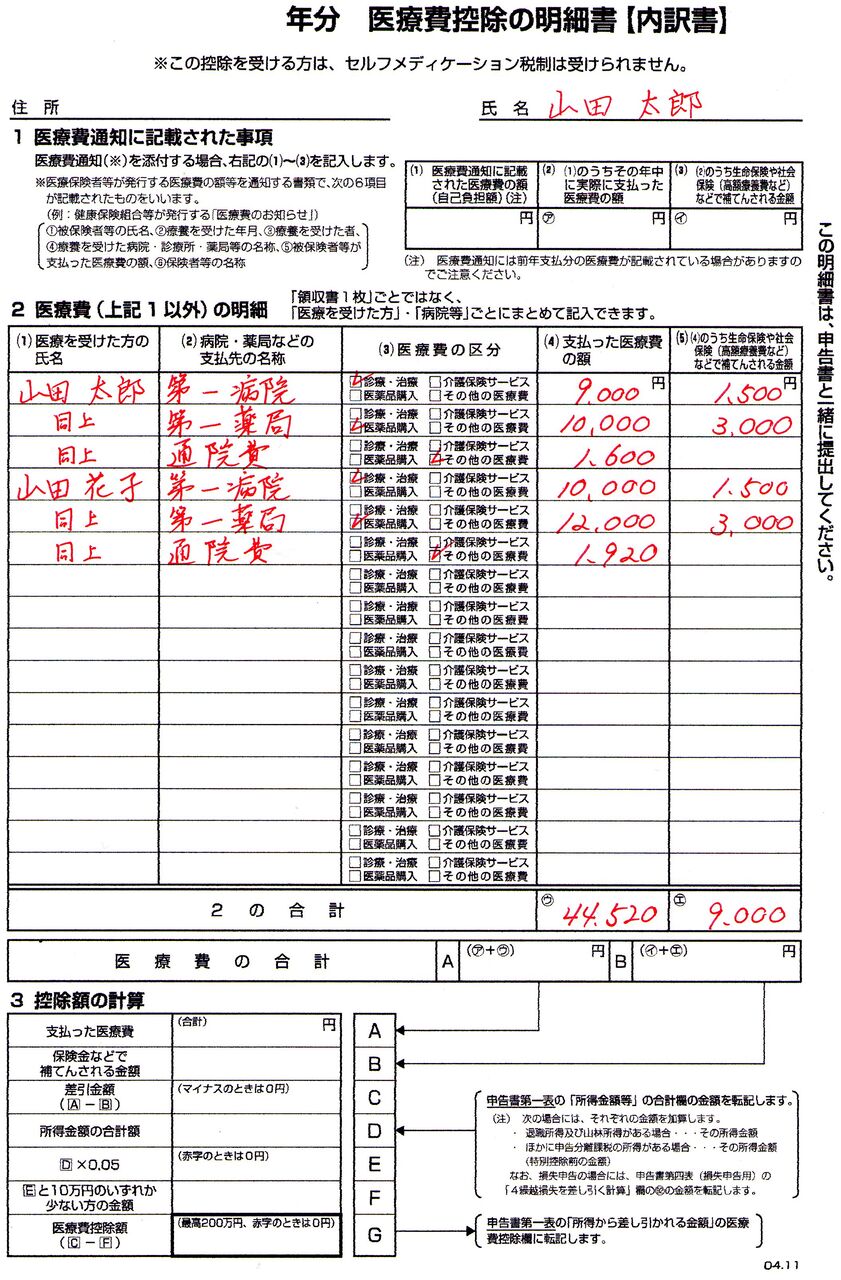 年分 医療費控除の明細書【内訳書】
※この控除を受ける方は、セルフメディケーション税制は受けられません。
住所
氏名 山田 太郎
1 医療費通知に記載された事項
医療費通知(※)を添付する場合、右記の(1)～(3)を記入します。
※医療保険者等が発行する医療費の額等を通知する書類で、次の6項目
が記載されたものをいいます。
(例:健康保険組合等が発行する「医療費のお知らせ」)
①被保険者等の氏名、②療養を受けた年月、③療養を受けた者、
④療養を受けた病院・診療所・薬局等の名称、⑤被保険者等が
支払った医療費の額、⑥保険者等の名称
(1) 医療費通知に記載された医療費の額(自己負担額)(注)
(2) (1)のうちその年中に実際に支払った医療費の額
(3) (2)のうち生命保険や社会保険(高額療養費など)などで補てんされる金額
円 ㋐ 円 ㋑ 円
(注) 医療費通知には前年支払分の医療費が記載されている場合がありますの
でご注意ください。
この明細書は、申告書と一緒に提出してください。
2 医療費(上記1以外)の明細
「領収書1枚」ごとではなく、
「医療を受けた方」・「病院等」ごとにまとめて記入できます。
(1) 医療を受けた方の氏名
(2) 病院・薬局などの支払先の名称
(3) 医療費の区分
(4) 支払った医療費の額
(5) (4)のうち生命保険や社会保険(高額療養費など)などで補てんされる金額
山田 太郎 第一病院 ☑診療・治療 □介護保険サービス 9.000円 1.500円
□医薬品購入 □その他の医療費
同上 第一薬局 □診療・治療 □介護保険サービス 10,000 3,000
☑医薬品購入 □その他の医療費
同上 通院費 □診療・治療 □介護保険サービス 1.600
□医薬品購入 ☑その他の医療費
山田 花子 第一病院 ☑診療・治療 □介護保険サービス 10,000 1.500
□医薬品購入 □その他の医療費
同上 第一薬局 □診療・治療 □介護保険サービス 12,000 3,000
☑医薬品購入 □その他の医療費
同上 通院費 □診療・治療 □介護保険サービス 1.920
□医薬品購入 ☑その他の医療費
□診療・治療 □介護保険サービス
□医薬品購入 □その他の医療費
□診療・治療 □介護保険サービス
□医薬品購入 □その他の医療費
□診療・治療 □介護保険サービス
□医薬品購入 □その他の医療費
□診療・治療 □介護保険サービス
□医薬品購入 □その他の医療費
□診療・治療 □介護保険サービス
□医薬品購入 □その他の医療費
□診療・治療 □介護保険サービス
□医薬品購入 □その他の医療費
□診療・治療 □介護保険サービス
□医薬品購入 □その他の医療費
□診療・治療 □介護保険サービス
□医薬品購入 □その他の医療費
□診療・治療 □介護保険サービス
□医薬品購入 □その他の医療費
□診療・治療 □介護保険サービス
□医薬品購入 □その他の医療費
2の合計 ㋒ 44.520 ㋓ 9.000
医療費の合計 A (㋐+㋒) 円 B (㋑+㋓) 円
3 控除額の計算
支払った医療費 (合計) 円 A
保険金などで補てんされる金額 B
差引金額(A－B) (マイナスのときは0円) C
所得金額の合計額 D
D×0.05 (赤字のときは0円) E
Eと10万円のいずれか少ない方の金額 F
医療費控除額(C－F) (最高200万円、赤字のときは0円) G
申告書第一表の「所得金額等」の合計欄の金額を転記します。
(注) 次の場合には、それぞれの金額を加算します。
・ 退職所得及び山林所得がある場合・・・その所得金額
・ ほかに申告分離課税の所得がある場合・・・その所得金額
(特別控除前の金額)
なお、損失申告の場合には、申告書第四表(損失申告用)の
「4繰越損失を差し引く計算」欄の の金額を転記します。
申告書第一表の「所得から差し引かれる金額」の医療
費控除欄に転記します。
04.11